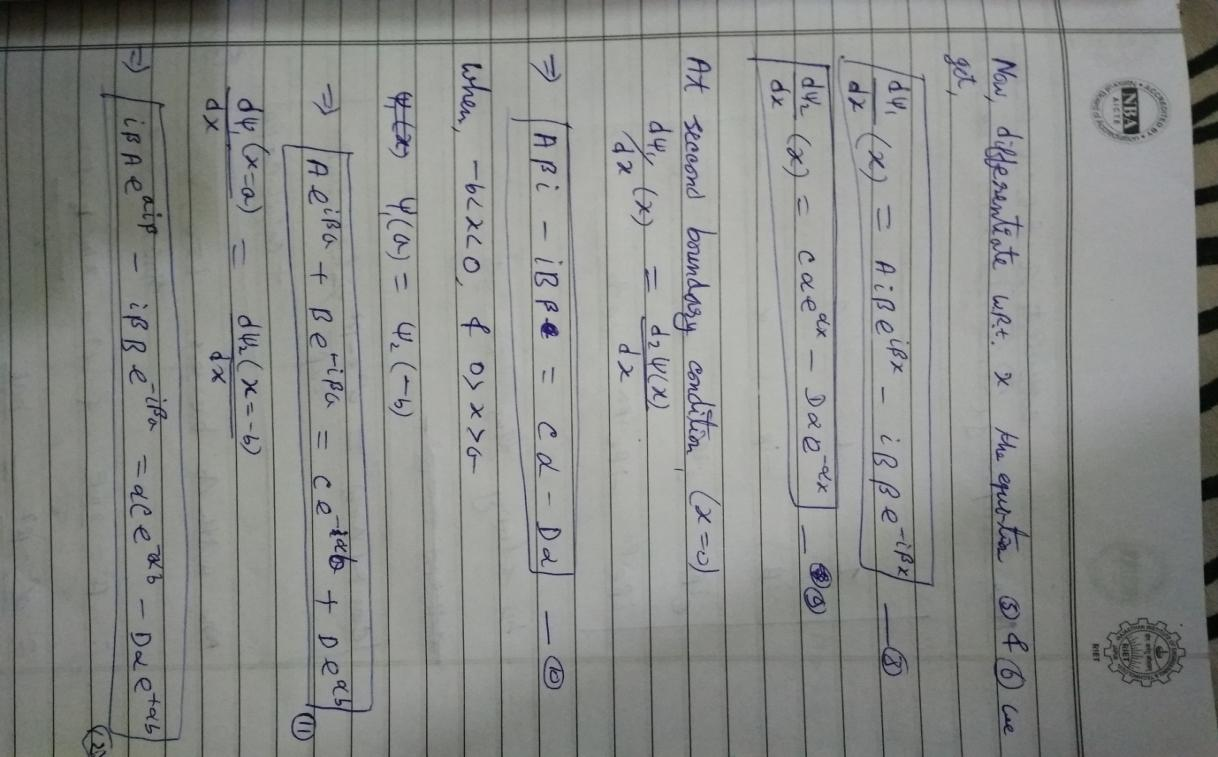 NBA
RIET
Now, differentiate w.R.t. x the equation ⑤ & ⑥ we
get,
dψ₁/dx (x) = Aiβe^{iβx} − iBβe^{−iβx} — ⑧
dψ₂/dx (x) = Cαe^{αx} − Dαe^{−αx} — ⑨
At second boundary condition, (x=0)
dψ₁/dx (x) = d₂ψ(x)/dx
⇒ Aβi − iBβ = Cα − Dα — ⑩
When, −b<x<0, & 0>x>a
ψ₁(a) = ψ₂(−b)
⇒ Ae^{iβa} + Be^{−iβa} = Ce^{−αb} + De^{αb}
⑪
dψ₁(x=a)/dx = dψ₂(x=−b)/dx
⇒ iβAe^{aiβ} − iβBe^{−iβa} = αCe^{−αb} − Dαe^{+αb}
⑫